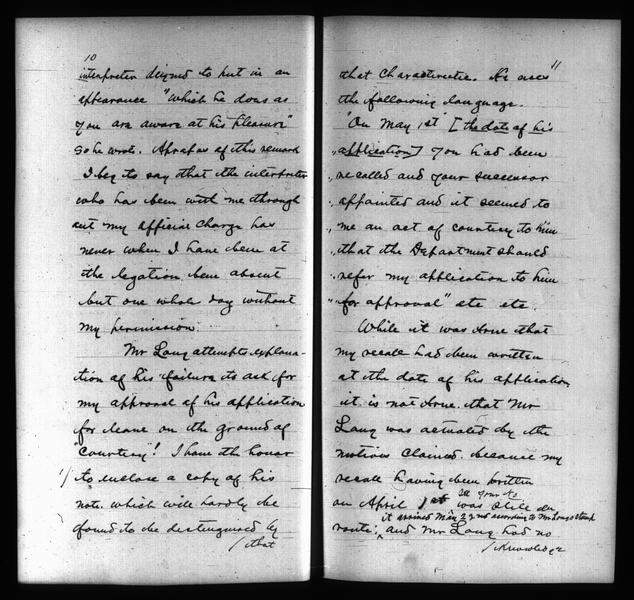 10
interpreter deigned to put in an
appearance "which he does as
you are aware at his pleasure"
So he wrote. Apropos of this remark
I beg to say that the interpreter
who has been with me through
out my official charge has
never when I have been at
the legation been absent
but one whole day without
my permission.
Mr Long attempts explana-
tion of his failure to ask for
my approval of his application
for leave on the ground of
"courtesy"! I have the honor
1/ to enclose a copy of his
note. which will hardly be
found to be distinguished by
/ that
11
that characteristic. He uses
the following language.
"On May 1st" [the date of his
"application] you had been
"recalled and your successor
"appointed and it seemed to
"me an act of courtesy to him
"that the Department should
"refer my application to him
"for approval" etc etc.
While it was true that
my recall had been written
at the date of his application
it is not true that Mr
Long was actuated by the
motives claimed. because my
recall having been written
on April 1st was still en
it arrived May 22nd according to Mr Longs stamp
route; and Mr Long had no
/ Knowledge